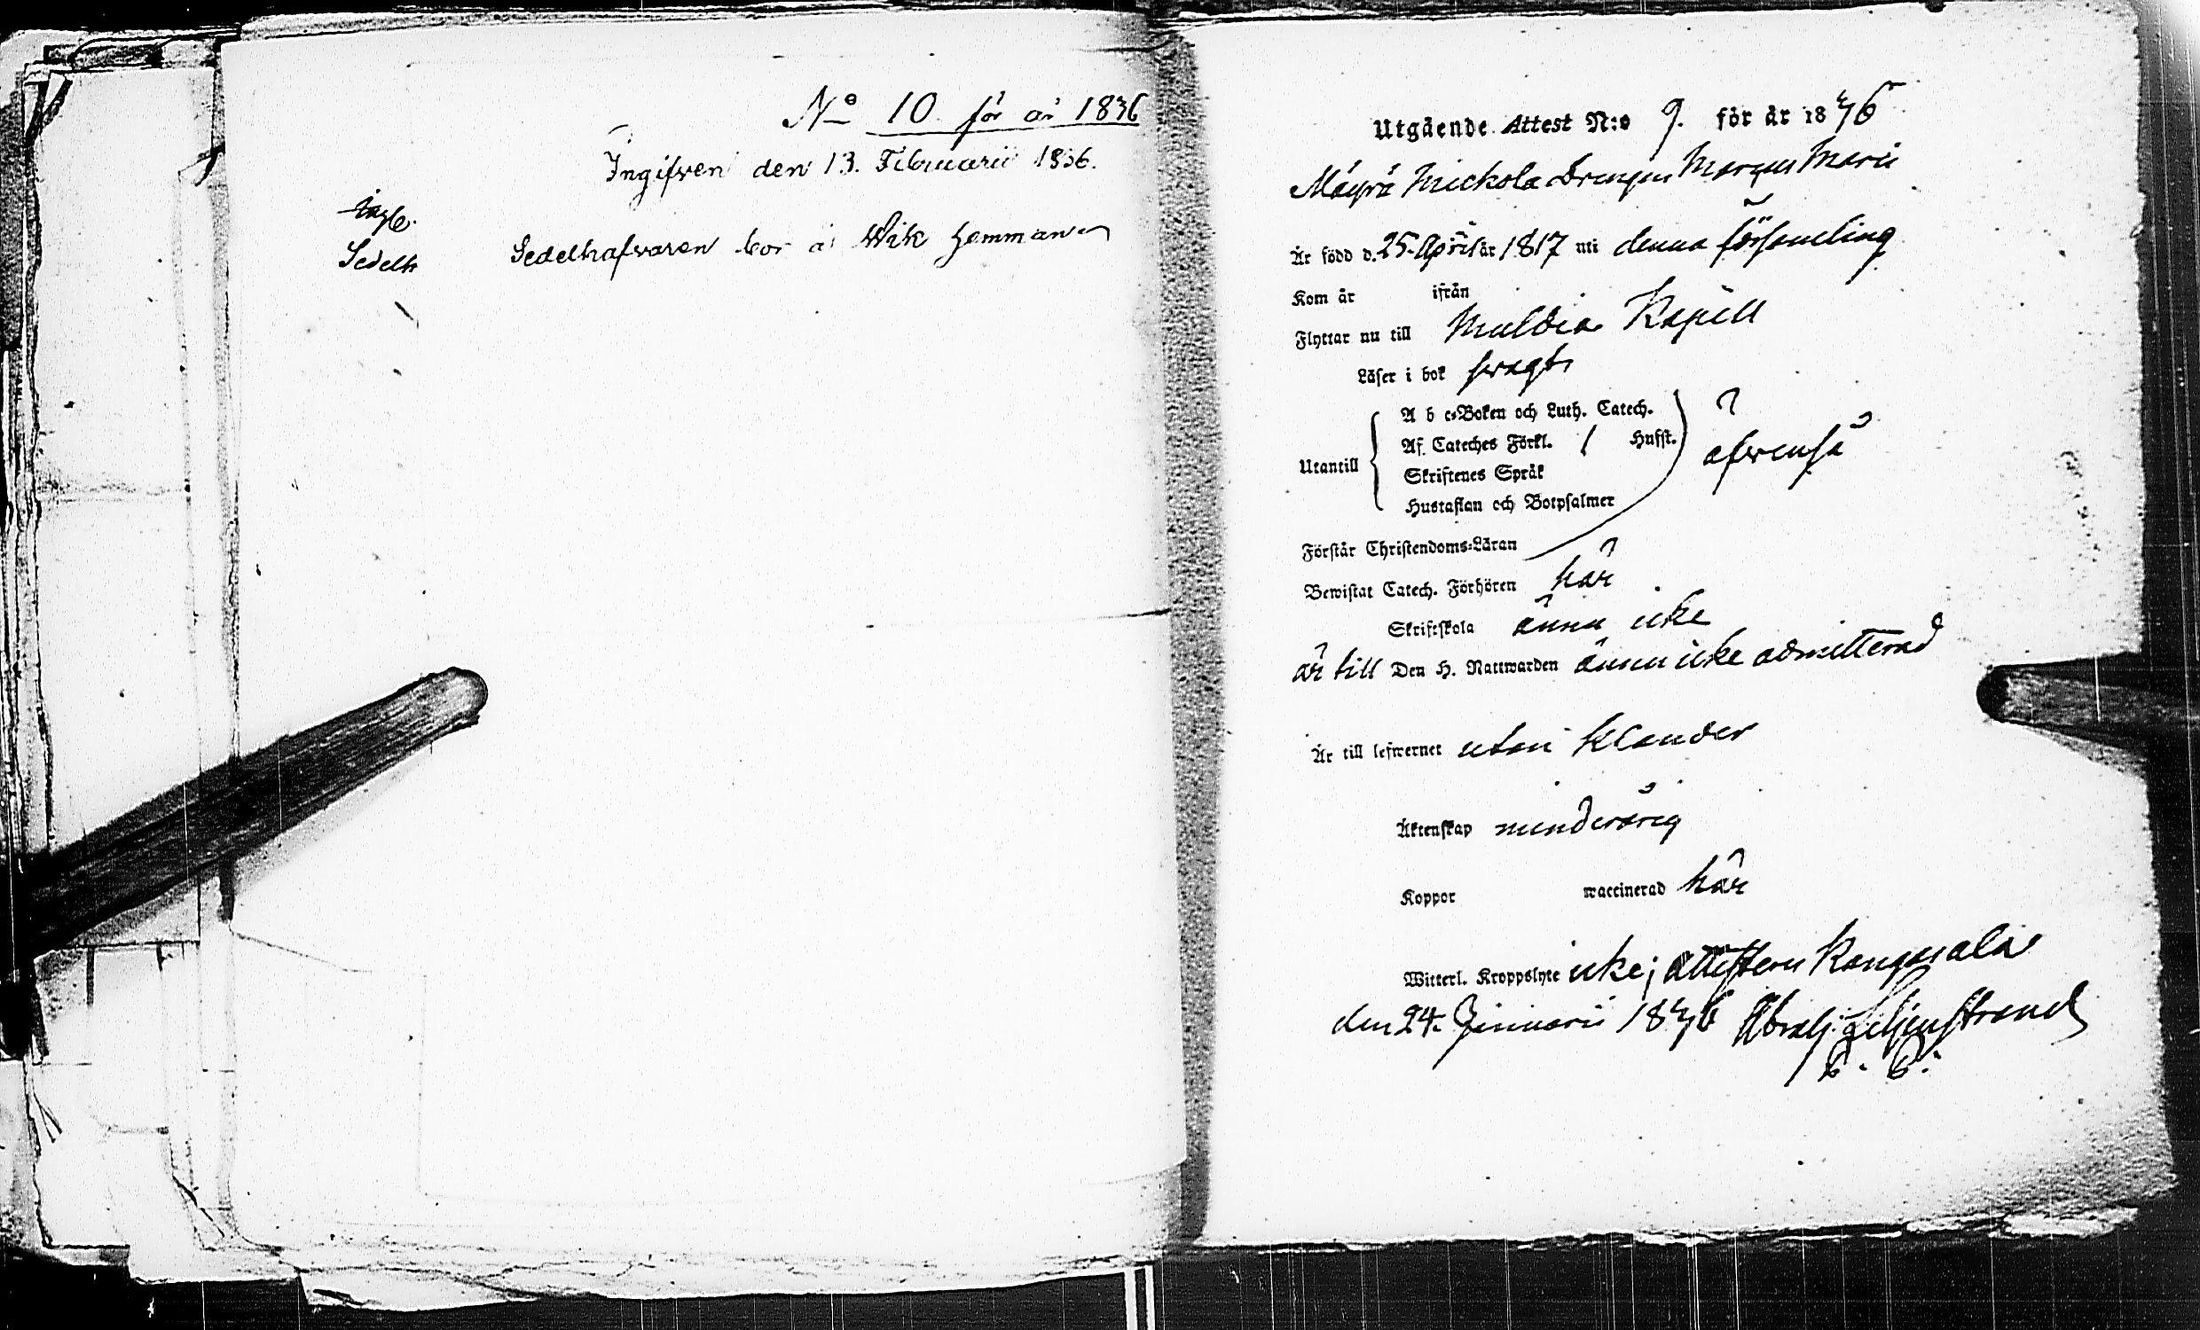 No 10 för år 1836
Ingifven den 13. Februarii 1836.
Sedelh
Sedelhafvaren bor å Wik hemman
Utgående Attest N:o 9. för år 1836
Mäyrä Mickola Drengen Marcus Marii
Är född d. 25. April år 1817 uti denna församling
Kom år ifrån
Flyttar nu till Muldia Kapell
Läser i bok swagt
A b c-Boken och Luth. Catech.
Af Cateches Förkl. Husst.
Utantill
Skriftenes Språk
äfvenså
Hustaflan och Botpsalmer
Förstår Christendoms-Läran
Bewistat Catech. Förhören här
Skriftskola ännu icke
är till Den H. Nattwarden ännu icke admitterad
Är till lefwernet utan klander
Äktenskap minderårig
Koppor waccinerad här
Witterl. Kroppslyte icke; attesterar Kangasala
den 24. Januarii 1836 Abrah. Liljenstrand